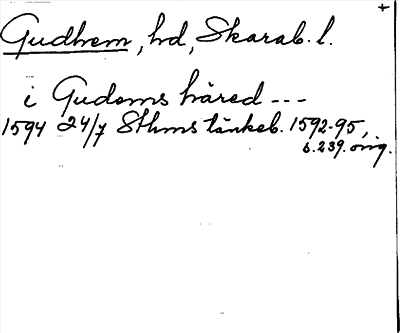 +
Gudhem, hd, Skarab. l.
i Gudoms häred ---
1594 24/7 Sthms tänkeb. 1592-95,
s. 239. orig.